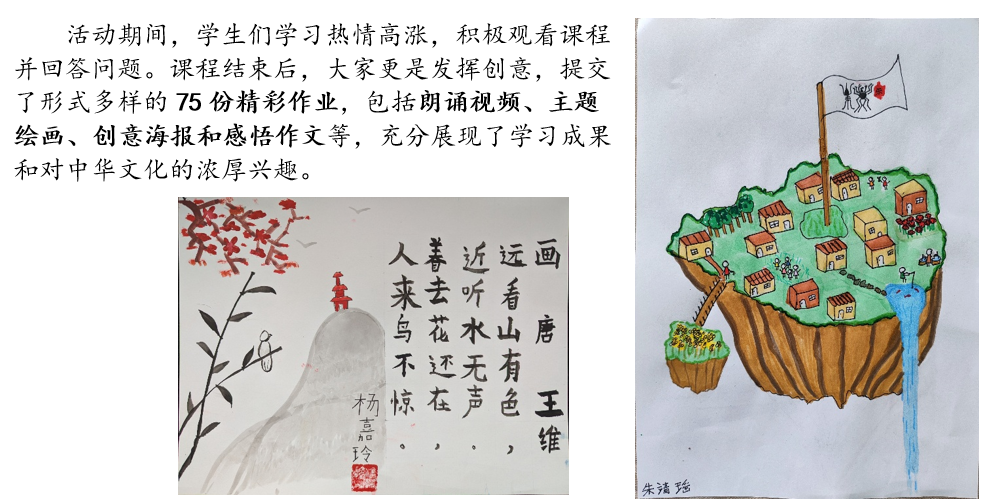 活动期间，学生们学习热情高涨，积极观看课程
并回答问题。课程结束后，大家更是发挥创意，提交
了形式多样的 75 份精彩作业，包括朗诵视频、主题
绘画、创意海报和感悟作文等，充分展现了学习成果
和对中华文化的浓厚兴趣。
画 唐 王维
远看山有色，
近听水无声.
春去花还在，
人来鸟不惊。
杨嘉玲
朱靖瑶